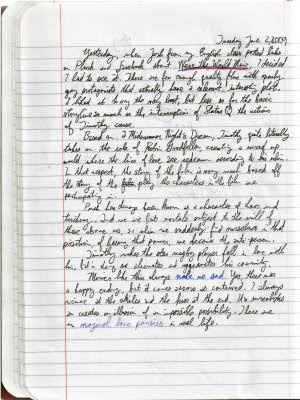 Tuesday June 2, 2009
Yesterday, when Josh from my English class posted links
on Plurk and facebook about Were the World Mine, I decided
I had to see it. There are few enough quality films with openly
gay protagonists that actually have a relevant, interesting plot.
I liked it to say the very least, but less so for the basic
storyline so much as the interception of States @ the actions
of Timothy cause.
Based on A Midsummer Night's Dream, Timothy quite literally
takes on the role of Robin Goodfellow, creating a mixed up
world where the lines of love are according to his whim.
In that respect, the story of the film is very much based off
the story of the play the characters in the film are
participating in.
Puck has always been known as a character of chaos and
trickery. And we we first mortals subject to the will of
those above us, so when we suddenly find ourselves in that
position of having that power, we become the ante person.
Timothy makes the star rugby player fall in love with
him, but in doing so alienates and aggravates the community.
Movies like this always make me sad. Yes, there was
a happy ending, but it comes across as contrived. I always
wince at the clichés and the kisses at the end. It's unrealistic
and creates an illusion of an impossible possibility. There are
no magical love pansies in real life.